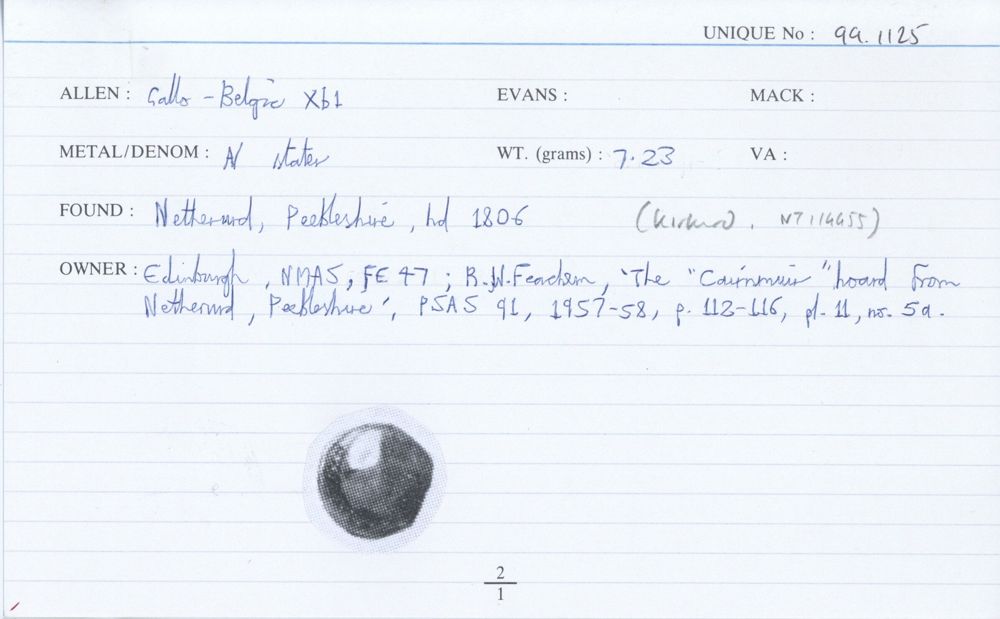 UNIQUE No : 99.1125
ALLEN : Gallo-Belgic Xb1 EVANS : MACK :
METAL/DENOM : A/ stater WT. (grams) : 7.23 VA :
FOUND : Netherurd, Peebleshire, hd 1806 (Kirkurd, NT 114455)
OWNER : Edinburgh, NMAS, FE 47; R.W. Feachem, 'The "Cairnmuir" hoard from
Netherurd, Peebleshire', PSAS 91, 1957-58, p. 112-116, pl. 11, no. 5a.
2
1